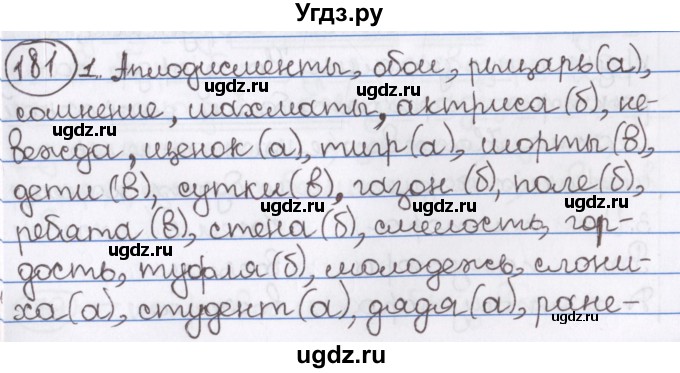 Угdз.ру
181 1. Аплодисменты, обои, рыцарь(а),
сомнение, шахматы, актриса(б), не-
вежда, щенок(а), тигр(а), шорты(в),
дети(в), сутки(в), газон(б), поле(б),
ребята(в), стена(б), смелость, гор-
дость, туфля(б), молодежь, слони-
ха(а), студент(а), дядя(а), ране-
ugdz.ru
ugdz.ru
ugdz.ru
ugdz.ru
ugdz.ru
ugdz.ru
ugdz.ru
ugdz.ru
ugdz.ru
ugdz.ru
ugdz.ru